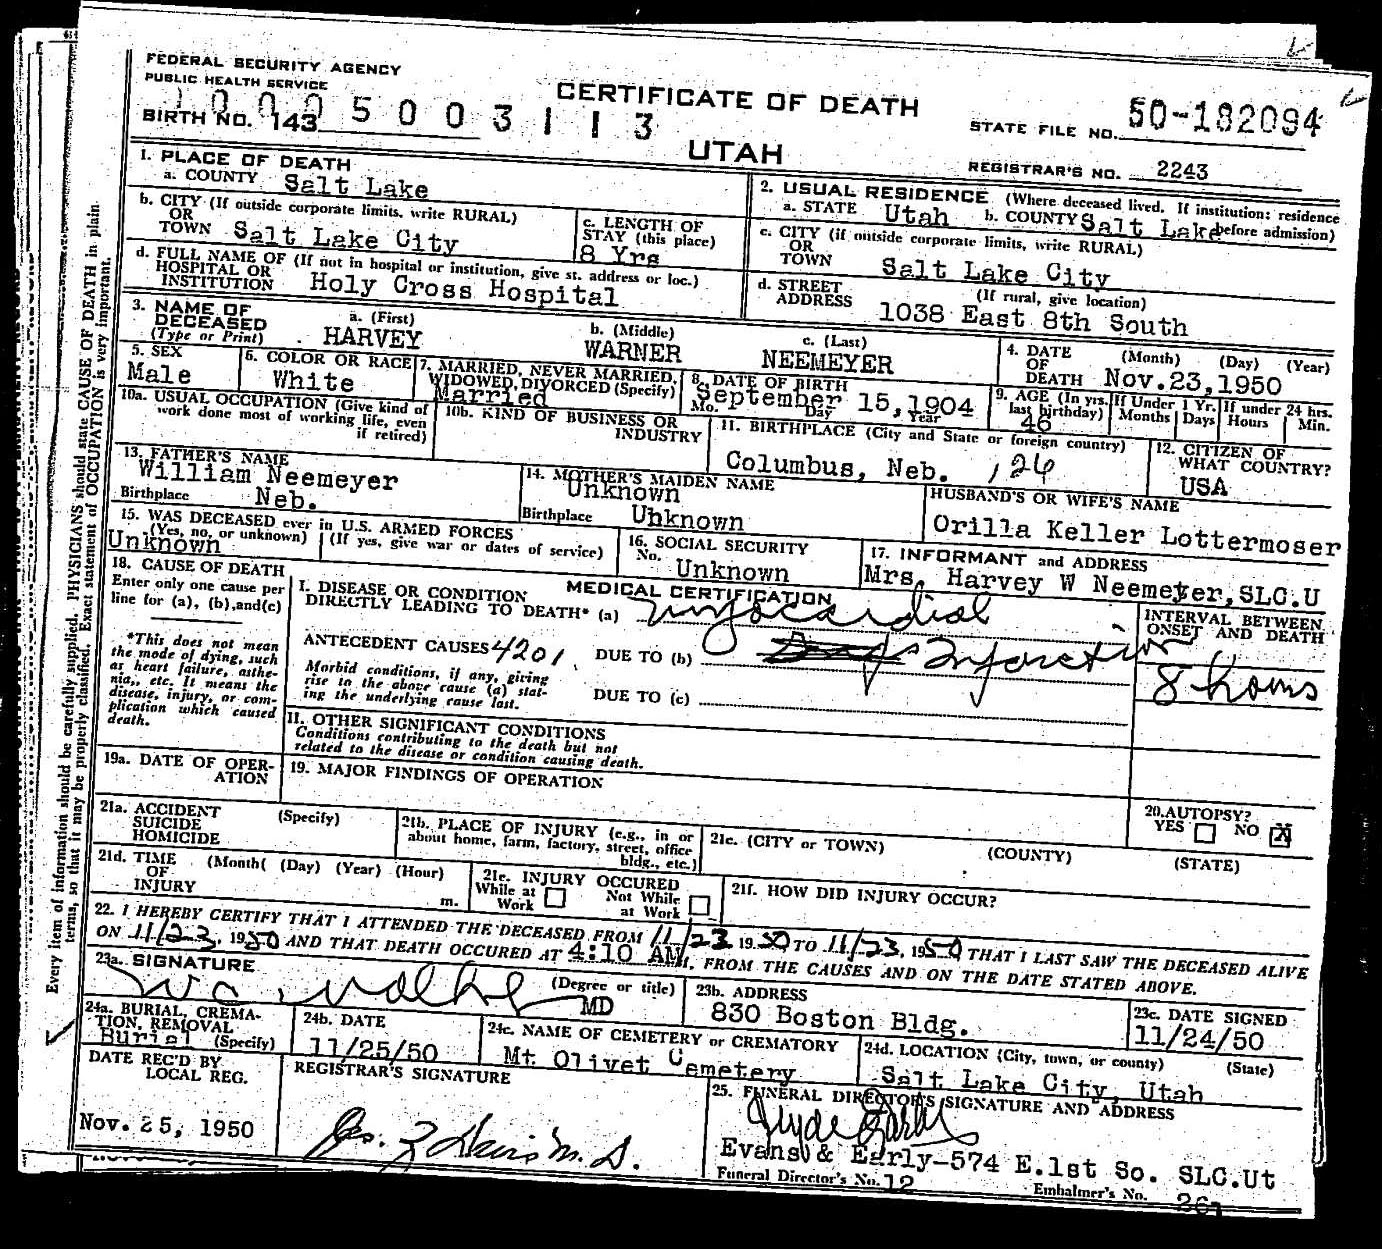 FEDERAL SECURITY AGENCY
PUBLIC HEALTH SERVICE
CERTIFICATE OF DEATH
UTAH
BIRTH NO. 143
5 0 0 3 1 1 3
STATE FILE NO. 50-182094
REGISTRAR'S NO. 2243
1. PLACE OF DEATH
a. COUNTY Salt Lake
b. CITY (If outside corporate limits, write RURAL)
OR
TOWN Salt Lake City
c. LENGTH OF
STAY (this place)
8 Yrs
d. FULL NAME OF (If not in hospital or institution, give st. address or loc.)
HOSPITAL OR
INSTITUTION Holy Cross Hospital
2. USUAL RESIDENCE (Where deceased lived. If institution: residence
a. STATE Utah b. COUNTY Salt Lake before admission)
c. CITY (if outside corporate limits, write RURAL)
OR
TOWN Salt Lake City
d. STREET (If rural, give location)
ADDRESS 1038 East 8th South
3. NAME OF
DECEASED
(Type or Print)
a. (First) HARVEY
b. (Middle) WARNER
c. (Last) NEEMEYER
4. DATE (Month) (Day) (Year)
OF
DEATH Nov.23,1950
5. SEX
Male
6. COLOR OR RACE
White
7. MARRIED, NEVER MARRIED,
WIDOWED, DIVORCED (Specify)
Married
8. DATE OF BIRTH
September 15,1904
Mo. Day Year
9. AGE (In yrs.
last birthday)
46
If Under 1 Yr.
Months Days
If under 24 hrs.
Hours Min.
10a. USUAL OCCUPATION (Give kind of
work done most of working life, even
if retired)
10b. KIND OF BUSINESS OR
INDUSTRY
11. BIRTHPLACE (City and State or foreign country)
Columbus, Neb. , 26
12. CITIZEN OF
WHAT COUNTRY?
USA
13. FATHER'S NAME
William Neemeyer
Birthplace Neb.
14. MOTHER'S MAIDEN NAME
Unknown
Birthplace Unknown
HUSBAND'S OR WIFE'S NAME
Orilla Keller Lottermoser
15. WAS DECEASED ever in U.S. ARMED FORCES
(Yes, no, or unknown) (If yes, give war or dates of service)
Unknown
16. SOCIAL SECURITY
No. Unknown
17. INFORMANT and ADDRESS
Mrs. Harvey W Neemeyer, SLC.U
18. CAUSE OF DEATH
Enter only one cause per
line for (a), (b), and (c)
*This does not mean
the mode of dying, such
as heart failure, asthe-
nia,, etc. It means the
disease, injury, or com-
plication which caused
death.
MEDICAL CERTIFICATION
I. DISEASE OR CONDITION
DIRECTLY LEADING TO DEATH* (a) myocardial
ANTECEDENT CAUSES 4201 DUE TO (b) Infarction
Morbid conditions, if any, giving
rise to the above cause (a) stat-
ing the underlying cause last.
DUE TO (c)
INTERVAL BETWEEN
ONSET AND DEATH
8 hours
II. OTHER SIGNIFICANT CONDITIONS
Conditions contributing to the death but not
related to the disease or condition causing death.
19a. DATE OF OPER-
ATION
19. MAJOR FINDINGS OF OPERATION
20. AUTOPSY?
YES NO X
21a. ACCIDENT (Specify)
SUICIDE
HOMICIDE
21b. PLACE OF INJURY (e.g., in or
about home, farm, factory, street, office
bldg., etc.)
21c. (CITY or TOWN) (COUNTY) (STATE)
21d. TIME (Month( (Day) (Year) (Hour)
OF
INJURY m.
21e. INJURY OCCURED
While at Work Not While at Work
21f. HOW DID INJURY OCCUR?
22. I HEREBY CERTIFY THAT I ATTENDED THE DECEASED FROM 11/23 19 50 TO 11/23, 1950 THAT I LAST SAW THE DECEASED ALIVE
ON 11/23, 1950 AND THAT DEATH OCCURED AT 4:10 AM., FROM THE CAUSES AND ON THE DATE STATED ABOVE.
23a. SIGNATURE (Degree or title)
MD
23b. ADDRESS
830 Boston Bldg.
23c. DATE SIGNED
11/24/50
24a. BURIAL, CREMA-
TION, REMOVAL
Burial (Specify)
24b. DATE
11/25/50
24c. NAME OF CEMETERY or CREMATORY
Mt Olivet Cemetery
24d. LOCATION (City, town, or county) (State)
Salt Lake City, Utah
DATE REC'D BY
LOCAL REG.
Nov. 25, 1950
REGISTRAR'S SIGNATURE
25. FUNERAL DIRECTOR'S SIGNATURE AND ADDRESS
Evans & Early-574 E.1st So. SLC.Ut
Funeral Director's No. 12
Embalmer's No.
Every item of information should be carefully supplied. PHYSICIANS should state CAUSE OF DEATH in plain
terms, so that it may be properly classified. Exact statement of OCCUPATION is very important.